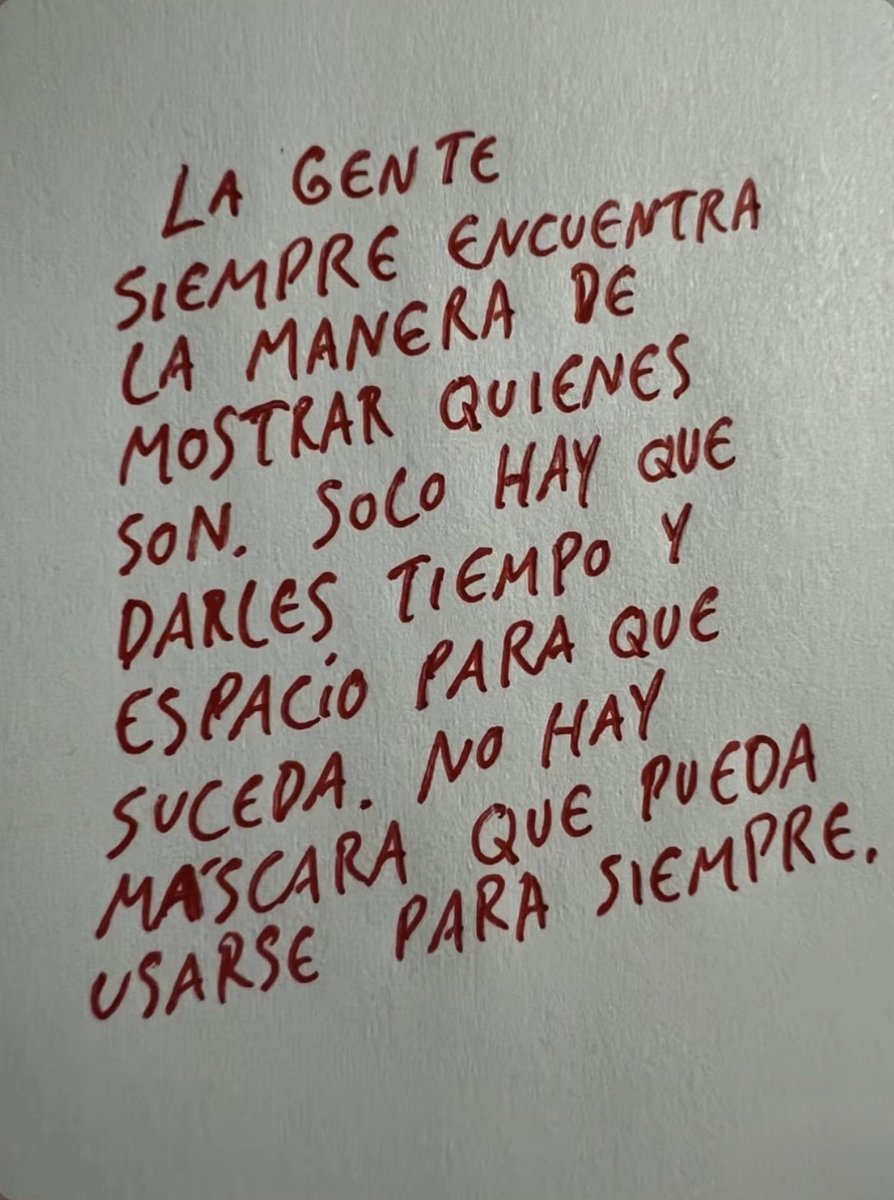 LA GENTE
SIEMPRE ENCUENTRA
LA MANERA DE
MOSTRAR QUIENES
SON. SOLO HAY QUE
DARLES TIEMPO Y
ESPACIO PARA QUE
SUCEDA. NO HAY
MÁSCARA QUE PUEDA
USARSE PARA SIEMPRE.